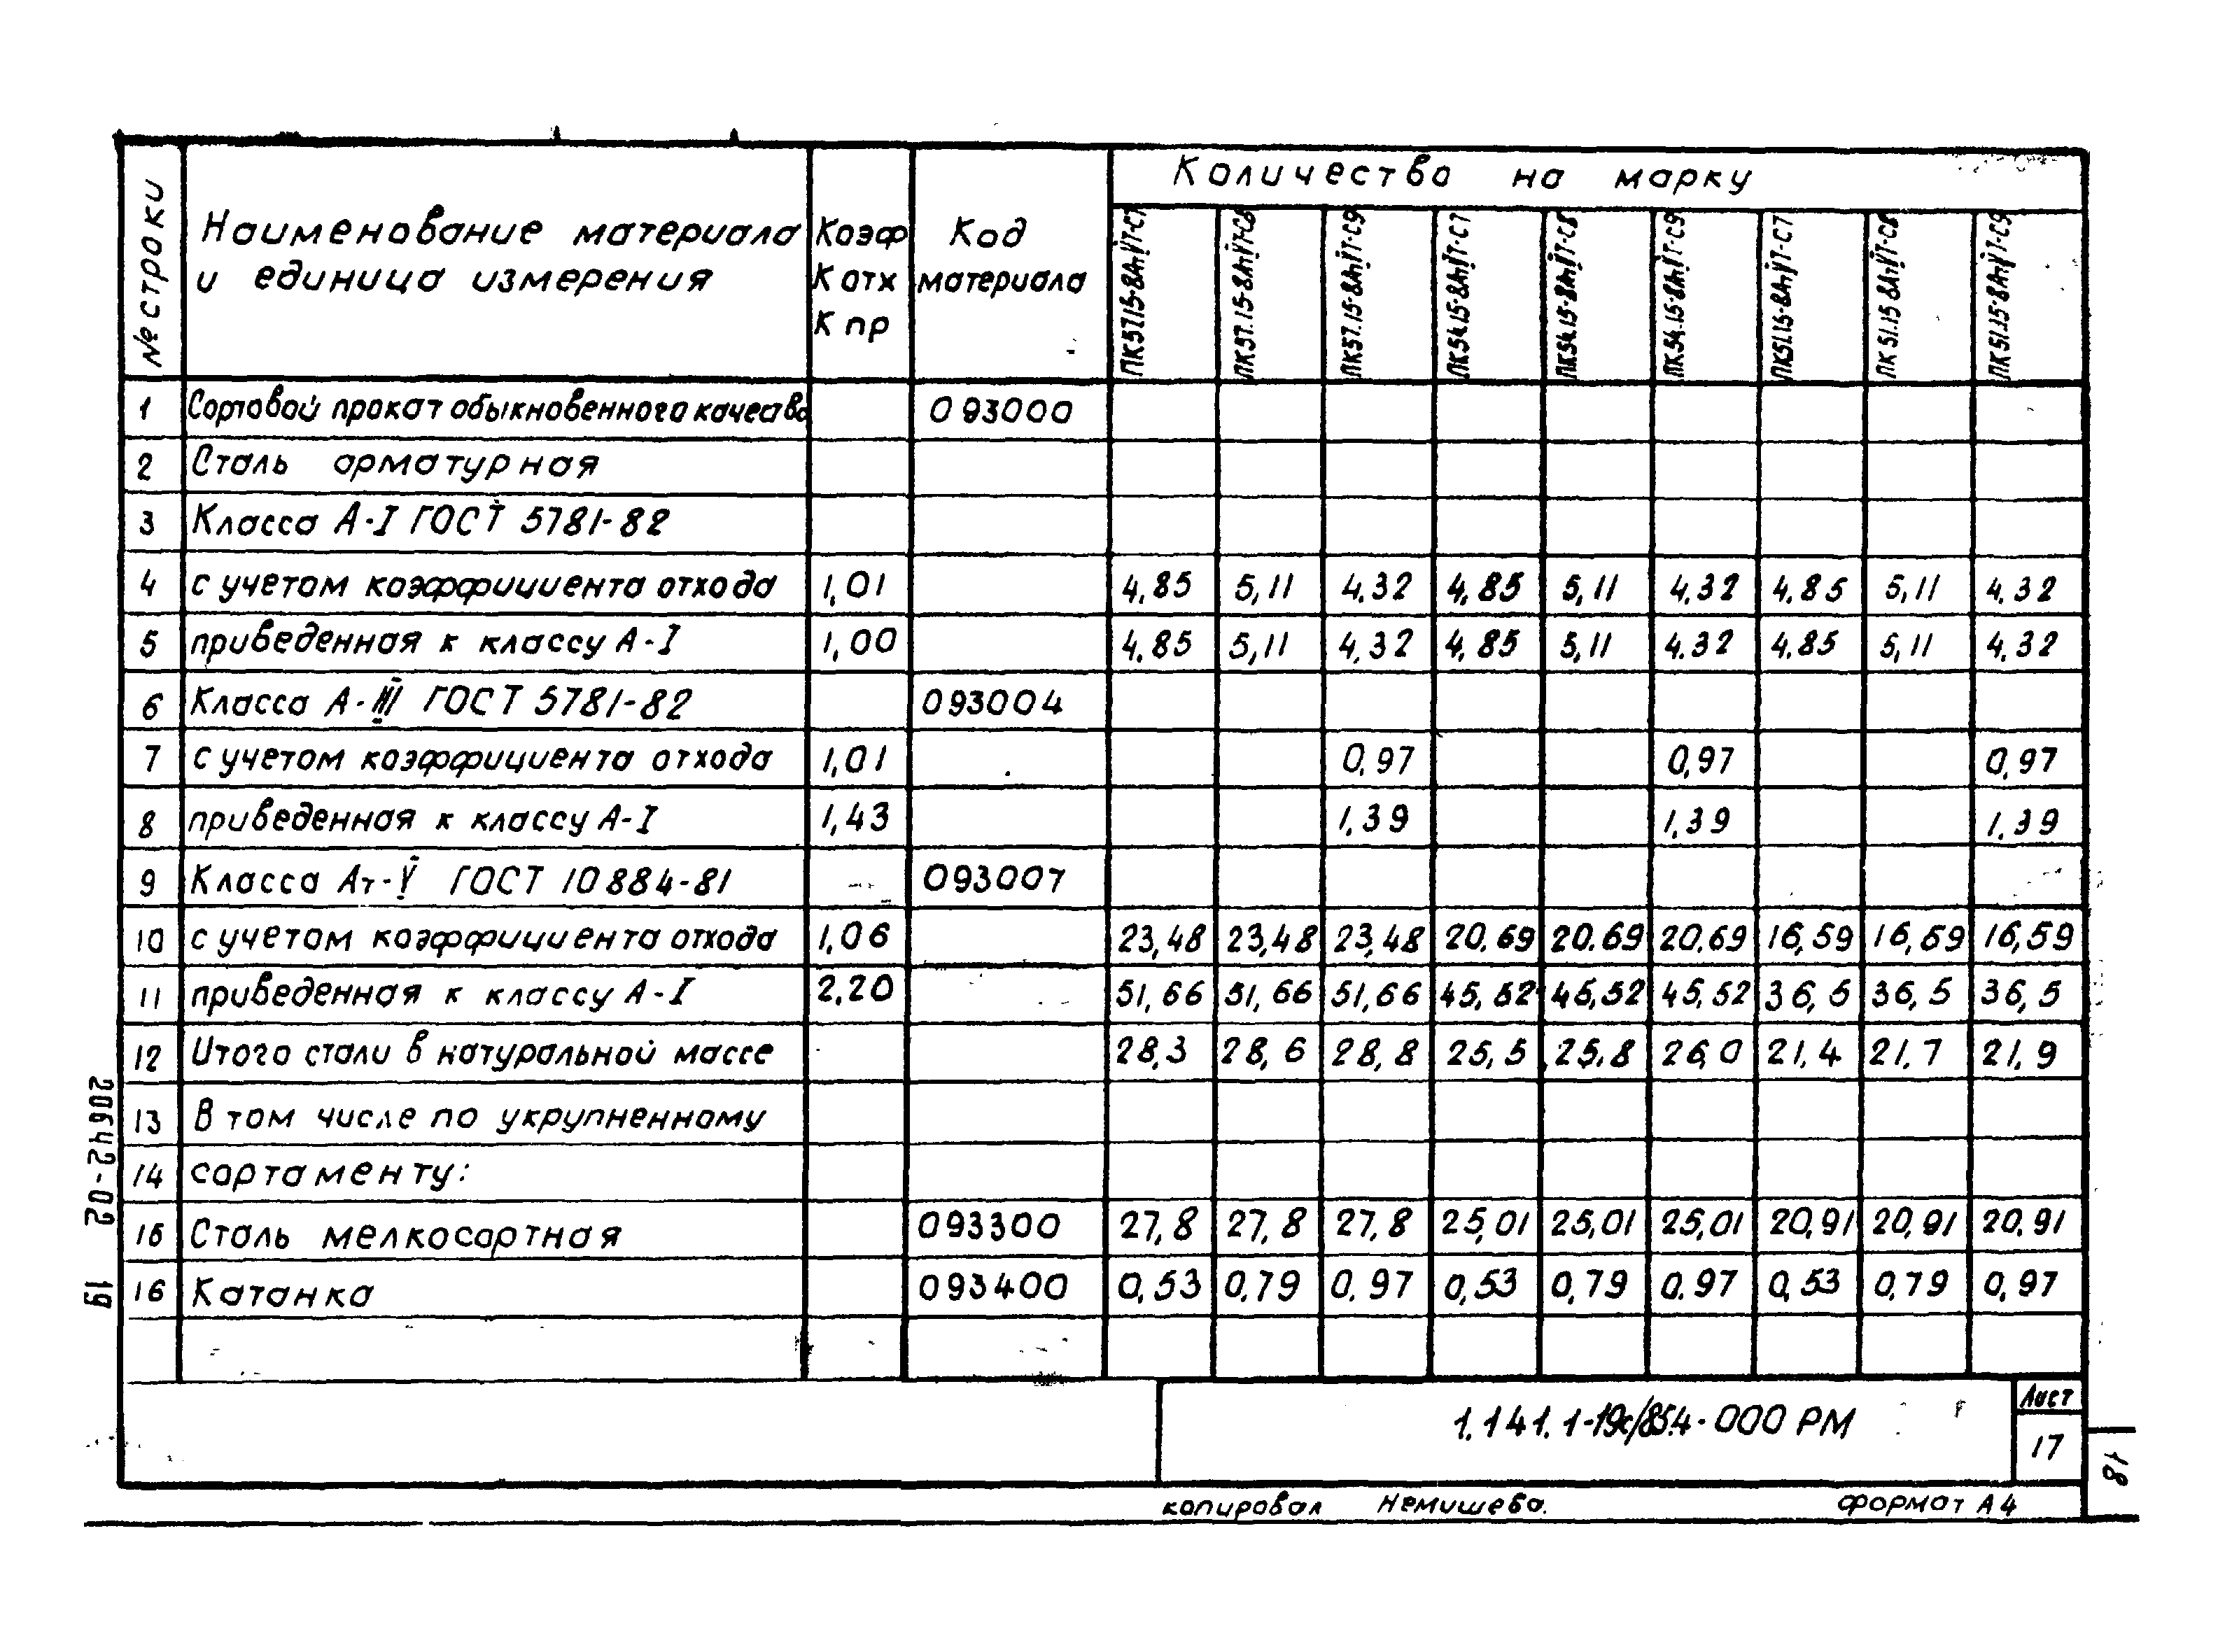 Количество на марку
№ строки
Наименование материала
и единица измерения
Коэф
К отх
К пр
Код
материала
ПК57.15-8АтVТ-С7
ПК57.15-8АтVТ-С8
ПК57.15-8АтVТ-С9
ПК54.15-8АтVТ-С7
ПК54.15-8АтVТ-С8
ПК54.15-8АтVТ-С9
ПК51.15-8АтVТ-С7
ПК51.15 8АтVТ-С8
ПК51.15-8АтVТ-С9
1 Сортовой прокат обыкновенного качества 093000
2 Сталь арматурная
3 Класса А-I ГОСТ 5781-82
4 с учетом коэффициента отхода 1,01 4,85 5,11 4.32 4,85 5,11 4.32 4.85 5,11 4.32
5 приведенная к классу А-I 1,00 4.85 5,11 4,32 4,85 5,11 4.32 4.85 5,11 4.32
6 Класса А-III ГОСТ 5781-82 093004
7 с учетом коэффициента отхода 1,01 0,97 0,97 0,97
8 приведенная к классу А-I 1,43 1,39 1,39 1,39
9 Класса Ат-V ГОСТ 10884-81 093007
10 с учетом коэффициента отхода 1,06 23,48 23,48 23,48 20.69 20.69 20.69 16,59 16,59 16,59
11 приведенная к классу А-I 2.20 51,66 51,66 51,66 45,52 45,52 45,52 36,5 36,5 36,5
12 Итого стали в натуральной массе 28,3 28,6 28,8 25,5 25.8 26,0 21,4 21.7 21,9
13 В том числе по укрупненному
14 сортаменту:
15 Сталь мелкосортная 093300 27,8 27,8 27,8 25,01 25,01 25,01 20,91 20,91 20,91
16 Катанка 093400 0,53 0,79 0,97 0,53 0,79 0.97 0,53 0,79 0,97
20642-02 19
1.141.1-19с/85.4-000 РМ
Лист
17
18
копировал Немишева.
формат А4